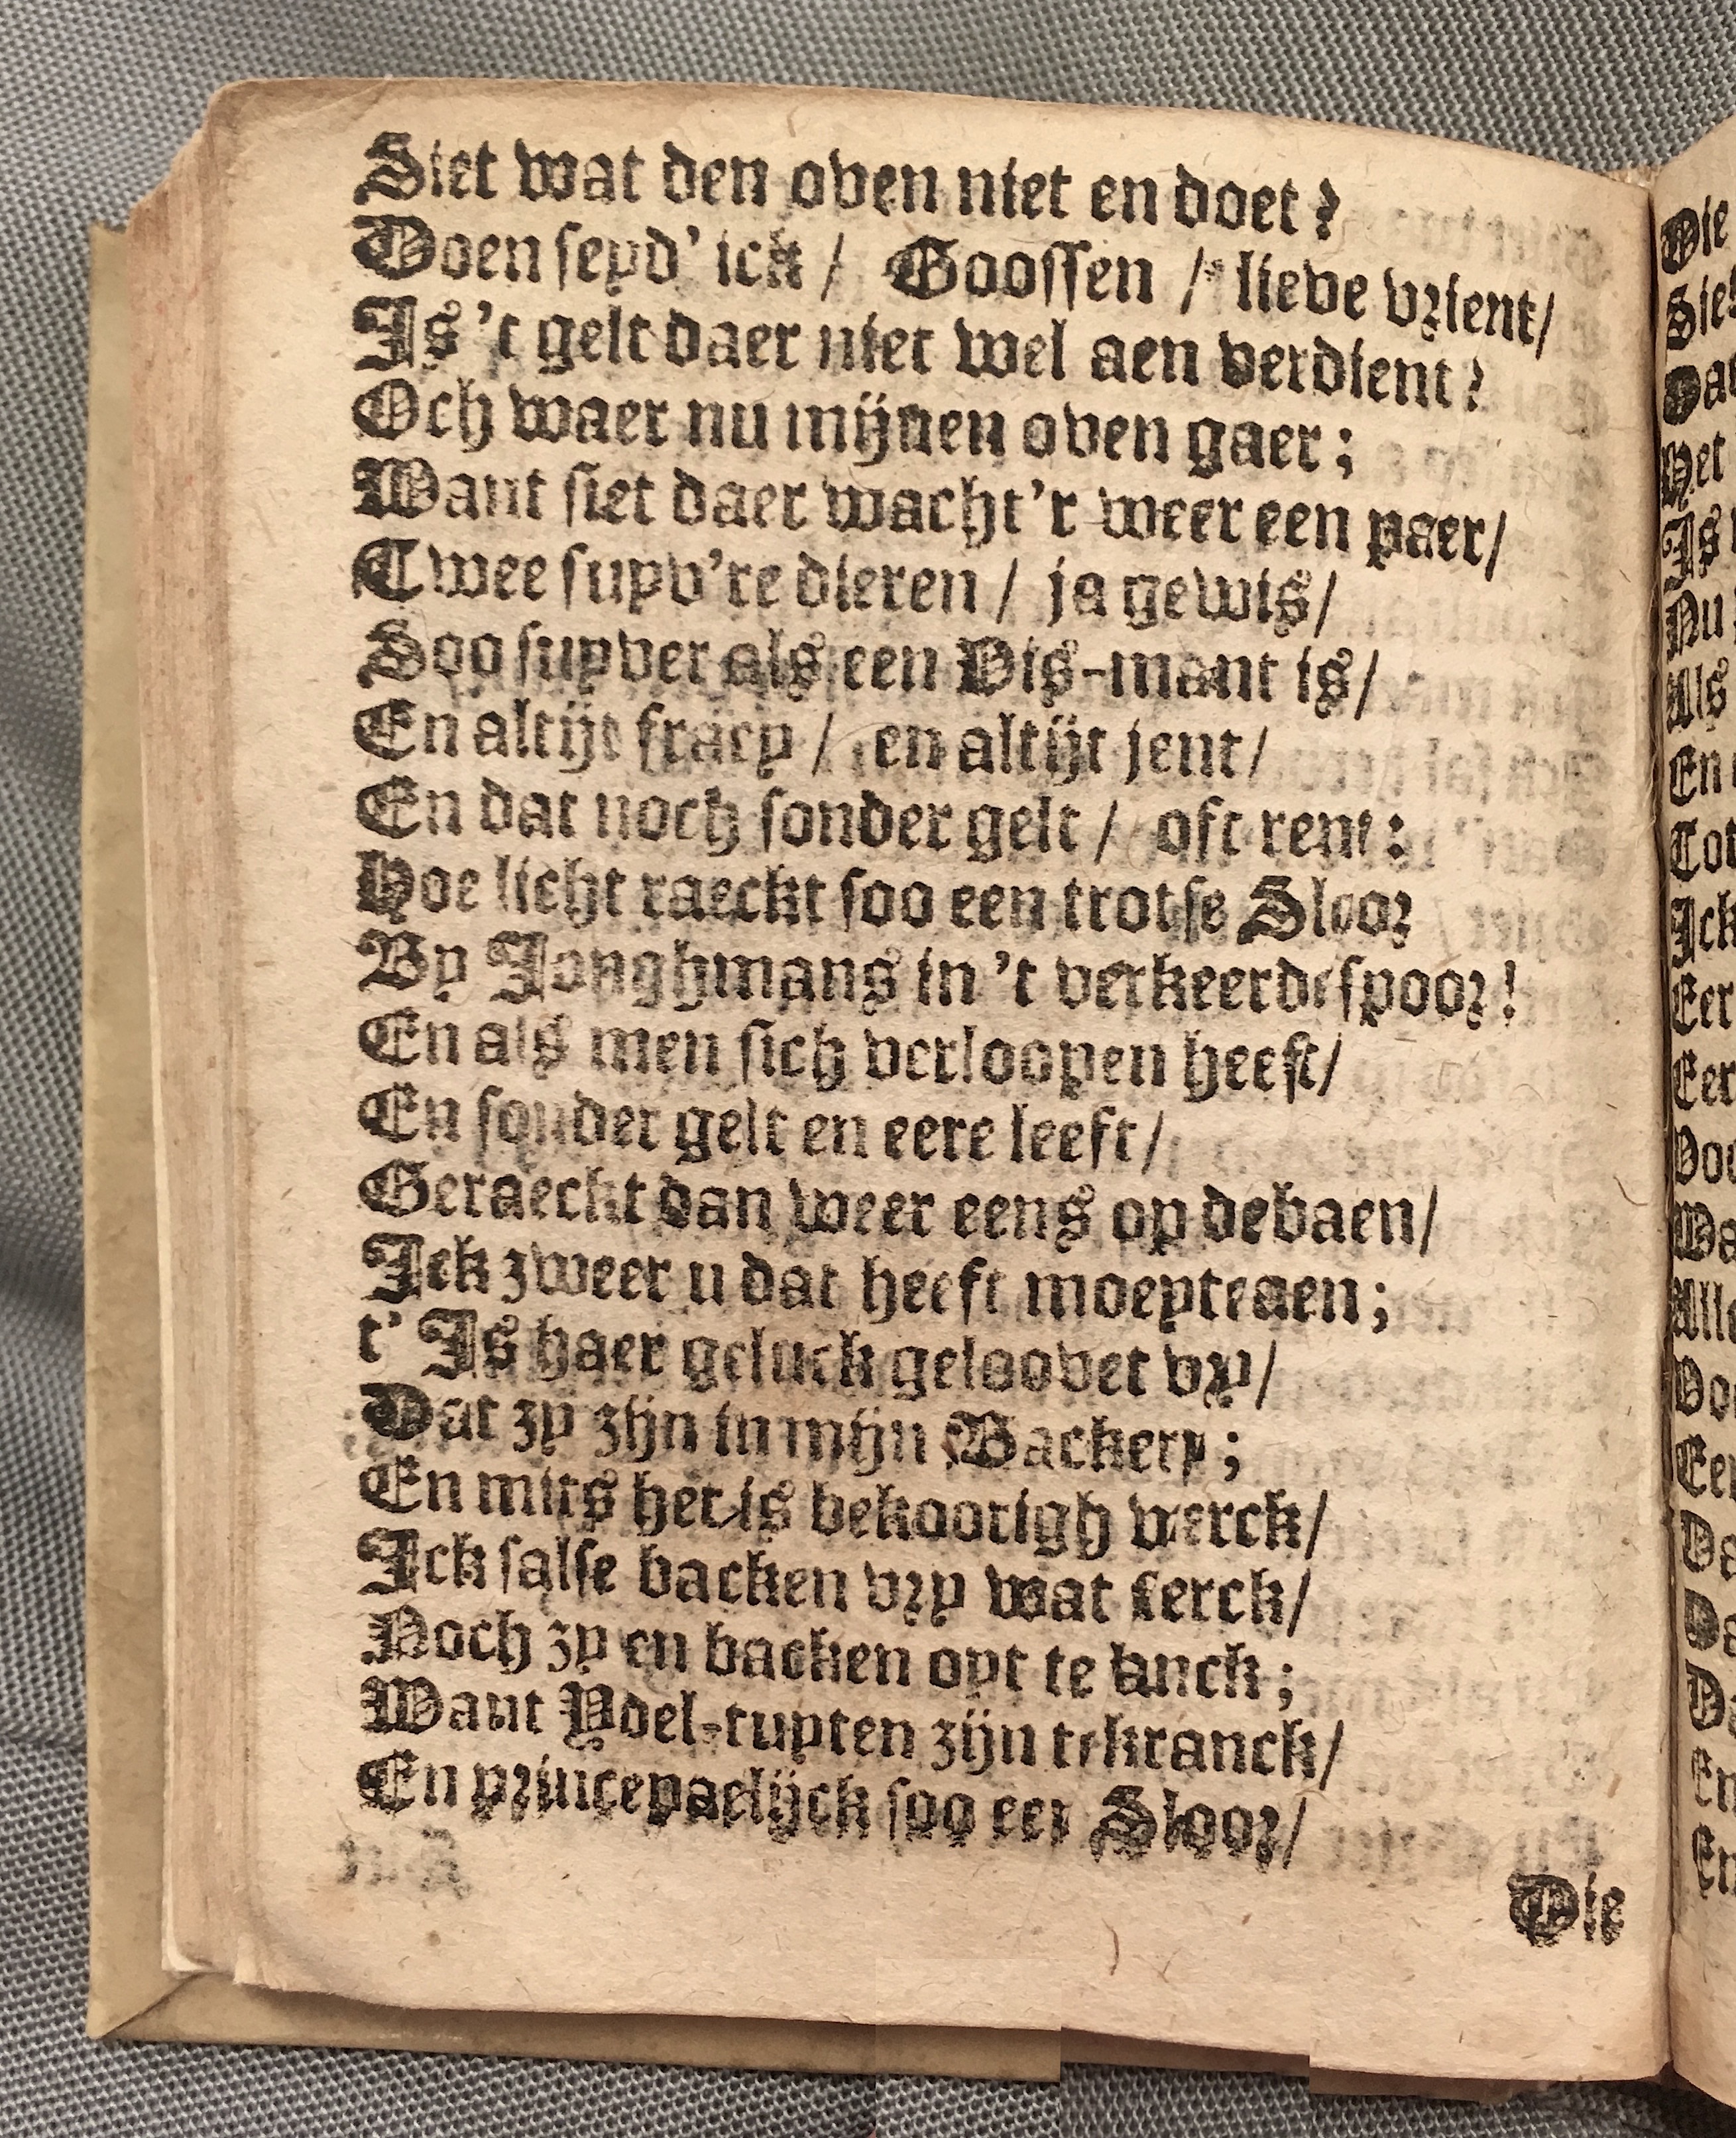 Siet wat den oven niet en doet?
Doen seyd' ick / Goossen / lieve vrient/
Is 't gelt daer niet wel aen verdient?
Och waer nu mijnen oven gaer;
Want siet daer wacht'r weer een paer/
Twee suyv're dieren / ja gewis/
Soo suyver als een Dis-mant is/
En altijt fraey / en altijt jent/
En dat noch sonder gelt / oft rent:
Hoe licht raeckt soo een trotse Sloor
By Jonghmans in 't verkeerde spoor!
En als men sich verloopen heeft/
En sonder gelt en eere leeft/
Geraeckt dan weer eens op de baen/
Ick zweer u dat heeft moeyte aen;
t' Is haer geluck geloovet vry/
Dat zy zijn in mijn Backery;
En mits het is bekoorigh werck/
Ick salse backen vry wat sterck/
Noch zy en backen oyt te
Want Ydel-tuyten zijn te kranck/
En princepaelijck soo een Sloor/
Die
Die
Siet
Dat
Het
Is
Nu
Als
En
Ick
Eer
Eer